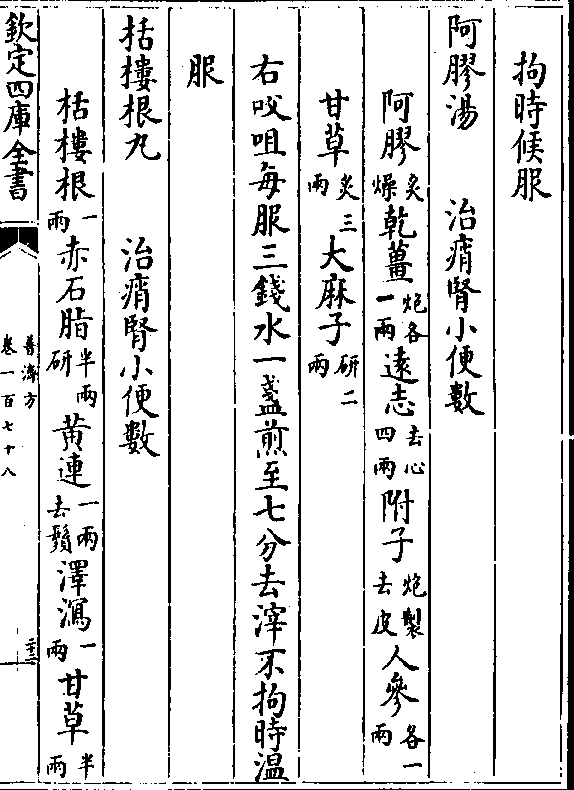 拘時候服
阿膠湯　治痟腎小便數
阿膠炙燥乾薑炮各一兩遠志去心四兩附子炮製去皮人參各一兩
甘草炙三兩大麻子研二兩
右㕮咀每服三錢水一盞煎至七分去滓不拘時温
服
栝樓根丸　治痟腎小便數
栝樓根一兩赤石脂半兩研黄連一兩去鬚澤瀉一兩甘草半兩
欽定四庫全書
普濟方
卷一百七十八